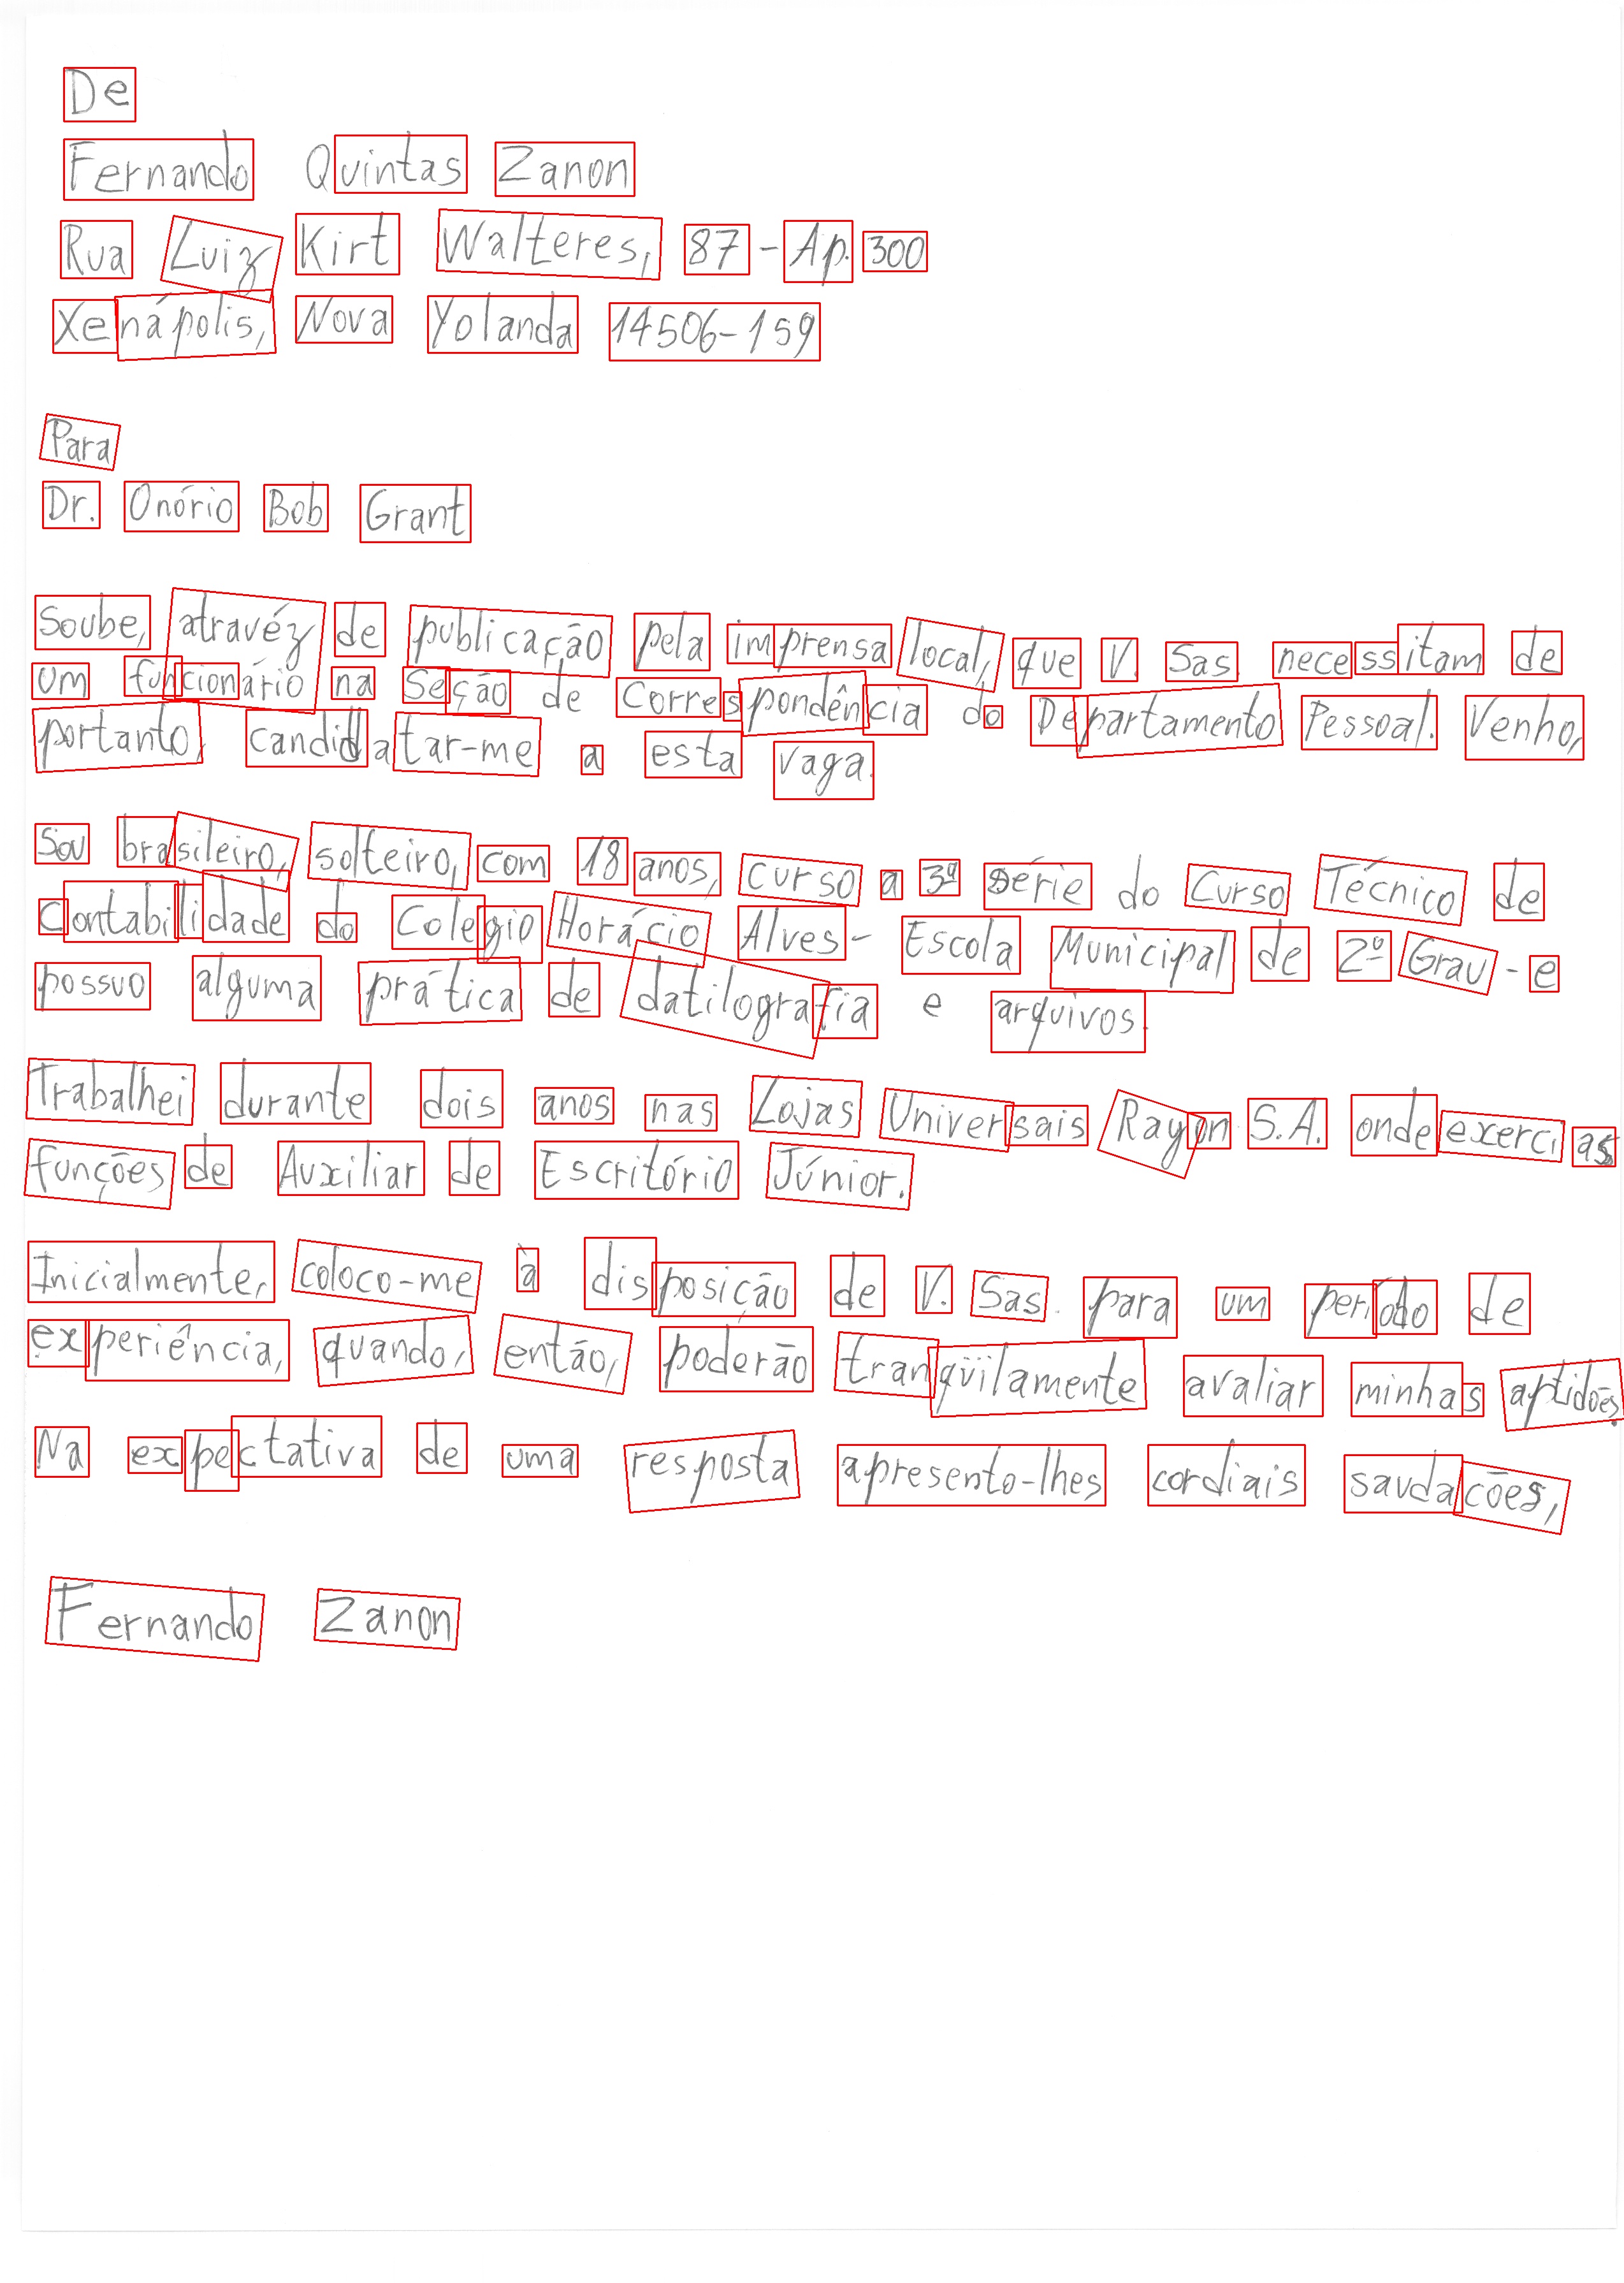 De
Fernando Quintas Zanon
Rua Luiz Kirt Walteres, 87 - Ap. 300
Xenápolis, Nova Yolanda 14506-159
Para
Dr. Onório Bob Grant
Soube, atravéz de publicação pela imprensa local, que V. Sas. necessitam de
um funcionário na Seção de Correspondência do Departamento Pessoal. Venho,
portanto, candidatar-me a esta vaga.
Sou brasileiro, solteiro, com 18 anos, curso a 3ª série do Curso Técnico de
Contabilidade do Colegio Horácio Alves - Escola Municipal de 2º Grau - e
possuo alguma prática de datilografia e arquivos.
Trabalhei durante dois anos nas Lojas Universais Rayon S.A. onde exerci as
funções de Auxiliar de Escritório Júnior.
Inicialmente, coloco-me à disposição de V. Sas. para um período de
experiência, quando, então, poderão tranqüilamente avaliar minhas aptidões.
Na expectativa de uma resposta apresento-lhes cordiais saudações,
Fernando Zanon